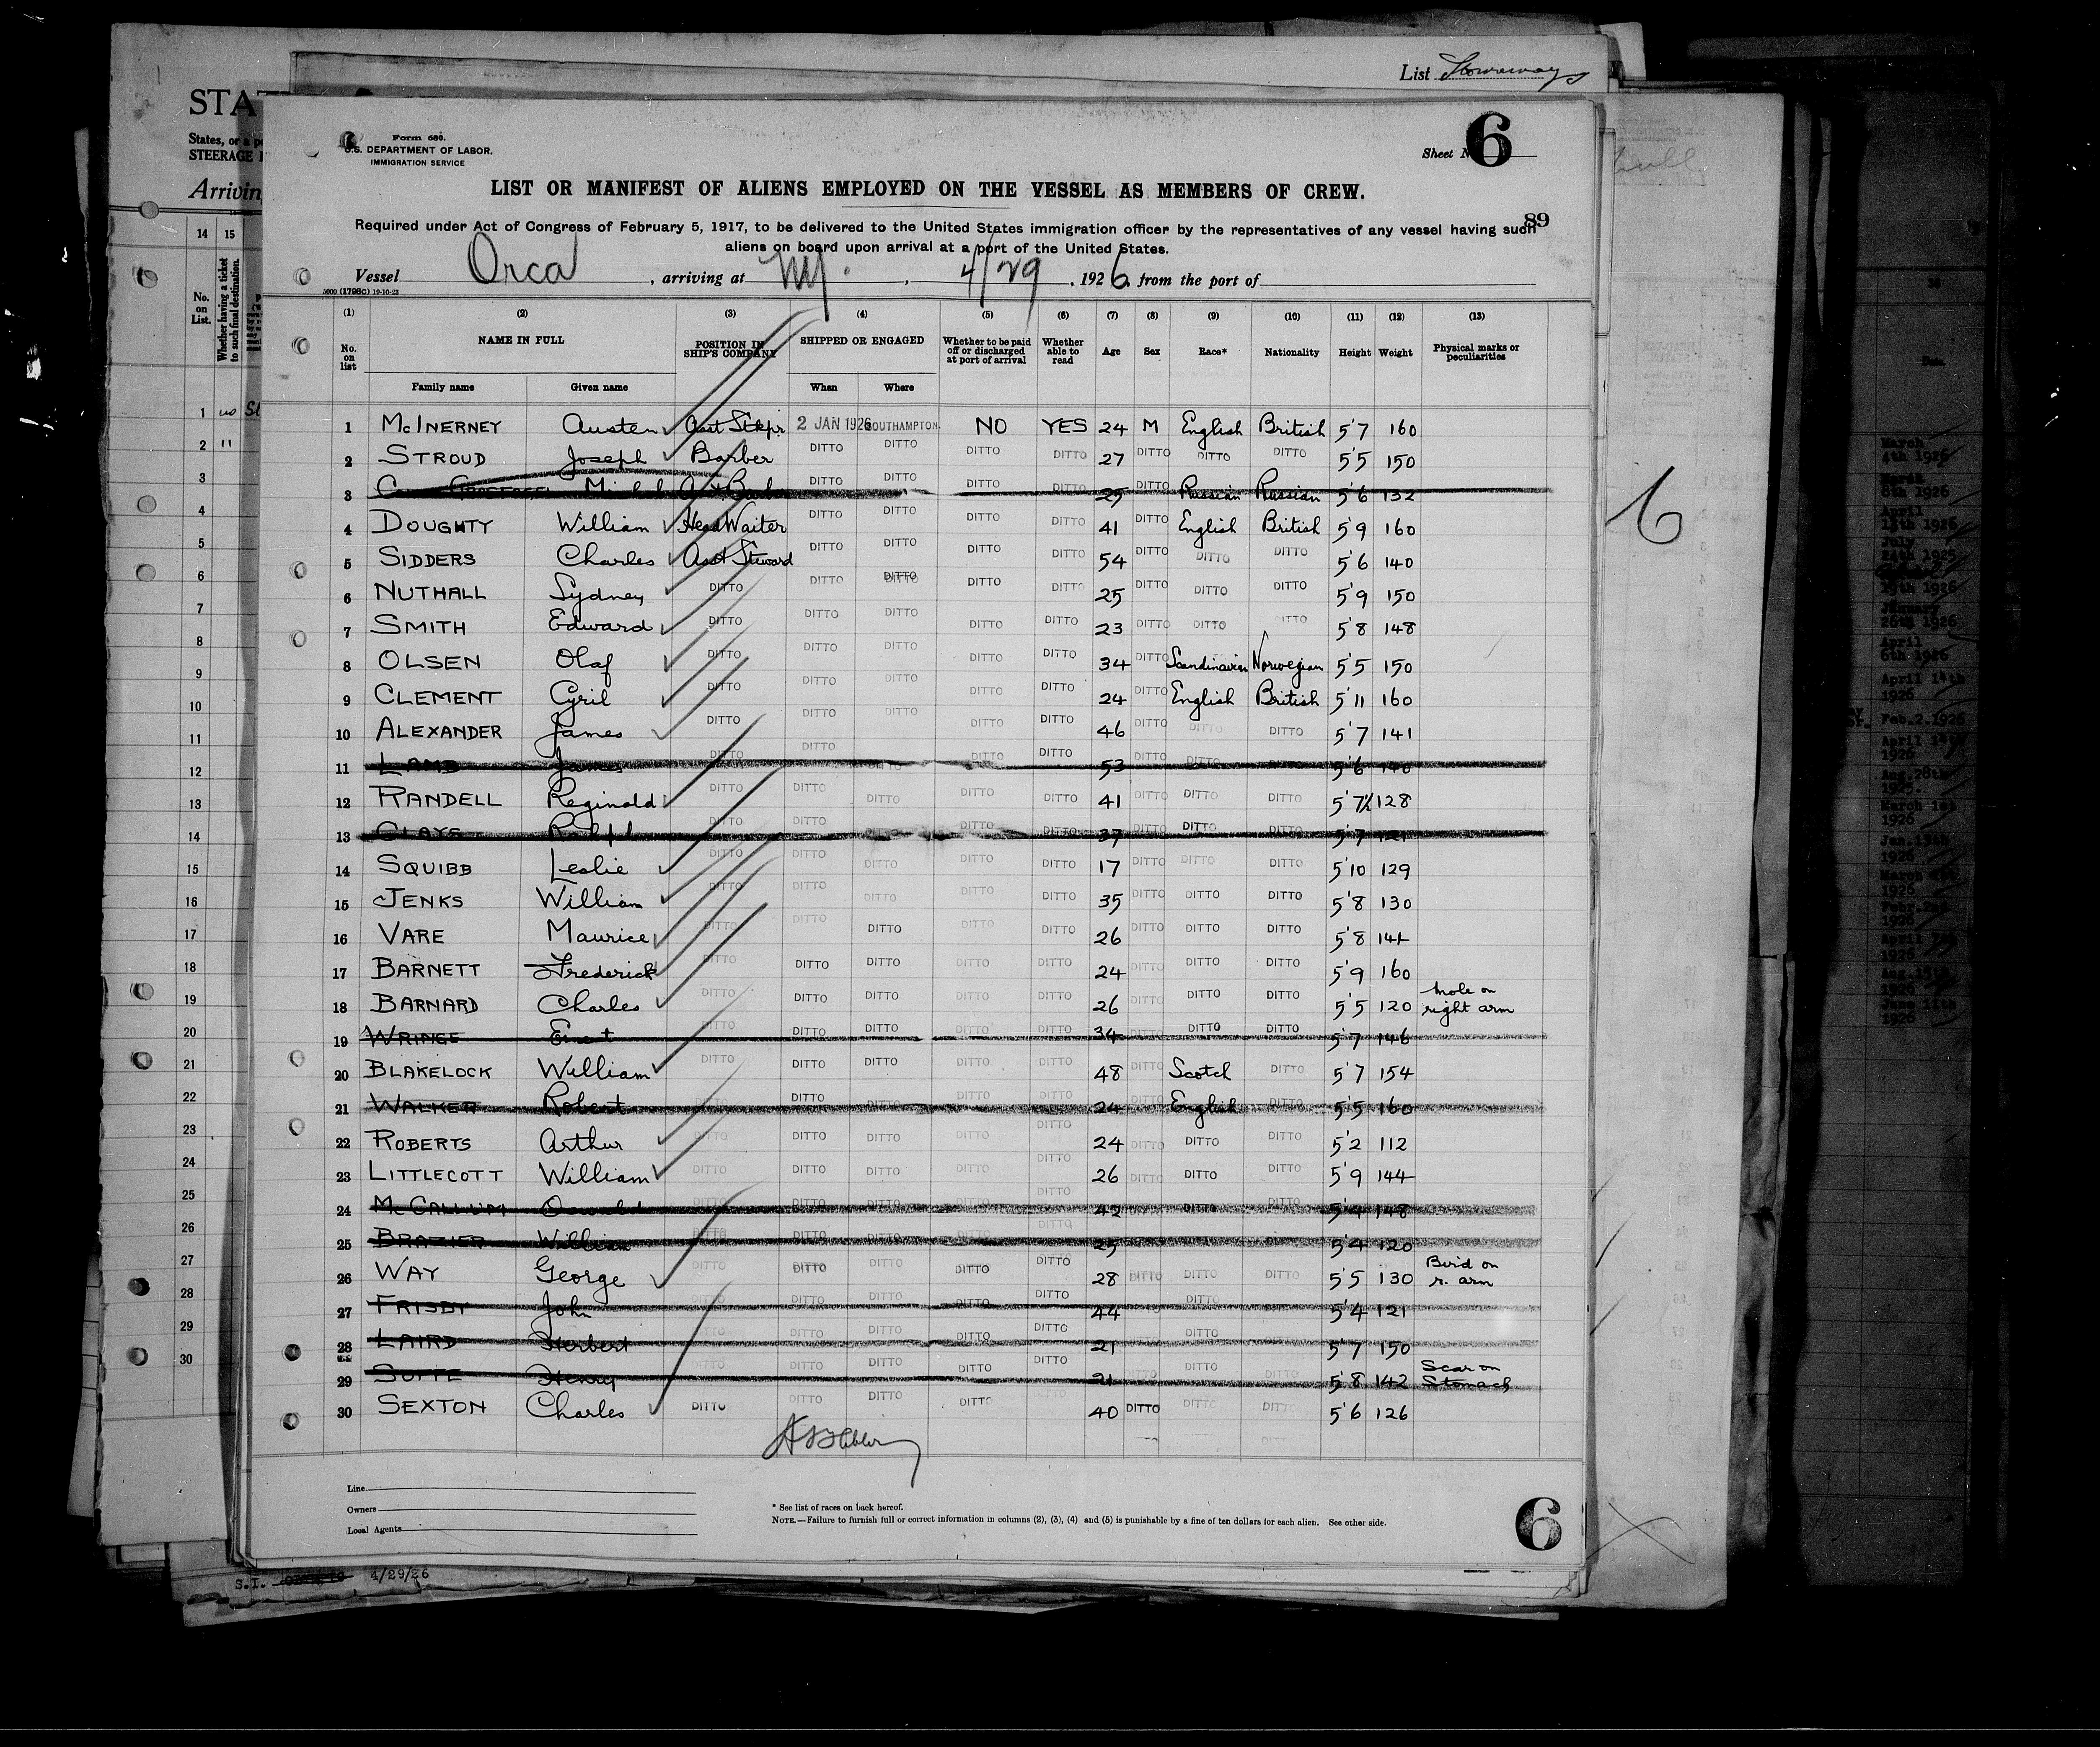 List Stowaways
STA
States, or a po
STEERAGE
Arrivin
14 15
No. on List.
Whether having a ticket to such final destination.
Form 680.
U.S. DEPARTMENT OF LABOR.
IMMIGRATION SERVICE
Sheet N 6
LIST OR MANIFEST OF ALIENS EMPLOYED ON THE VESSEL AS MEMBERS OF CREW.
89
Required under Act of Congress of February 5, 1917, to be delivered to the United States immigration officer by the representatives of any vessel having such
aliens on board upon arrival at a port of the United States.
Vessel Orca, arriving at NY., 4/29, 1926, from the port of
5000 (1798C) 19-10-23
(1) (2) (3) (4) (5) (6) (7) (8) (9) (10) (11) (12) (13)
No. on list NAME IN FULL POSITION IN SHIP'S COMPANY SHIPPED OR ENGAGED Whether to be paid off or discharged at port of arrival Whether able to read Age Sex Race* Nationality Height Weight Physical marks or peculiarities
Family name Given name When Where
1 McINERNEY Austen Asst Stkpr 2 JAN 1926 SOUTHAMPTON. NO YES 24 M English British 5'7 160
2 STROUD Joseph Barber DITTO DITTO DITTO DITTO 27 DITTO DITTO DITTO 5'5 150
3 Asst Barber DITTO DITTO DITTO DITTO 25 DITTO Russian Russian 5'6 132
4 DOUGHTY William Head Waiter DITTO DITTO DITTO DITTO 41 DITTO English British 5'9 160
5 SIDDERS Charles Asst Steward DITTO DITTO DITTO DITTO 54 DITTO DITTO DITTO 5'6 140
6 NUTHALL Sydney DITTO DITTO DITTO DITTO DITTO 25 DITTO DITTO DITTO 5'9 150
7 SMITH Edward DITTO DITTO DITTO DITTO DITTO 23 DITTO DITTO DITTO 5'8 148
8 OLSEN Olaf DITTO DITTO DITTO DITTO DITTO 34 DITTO Scandinavian Norwegian 5'5 150
9 CLEMENT Cyril DITTO DITTO DITTO DITTO DITTO 24 DITTO English British 5'11 160
10 ALEXANDER James DITTO DITTO DITTO DITTO DITTO 46 DITTO DITTO DITTO 5'7 141
11 LAMB James DITTO DITTO DITTO DITTO DITTO 53 DITTO DITTO 5'6 140
12 RANDELL Reginald DITTO DITTO DITTO DITTO DITTO 41 DITTO DITTO DITTO 5'7½ 128
13 CLAYS Ralph DITTO DITTO DITTO DITTO DITTO 37 DITTO DITTO DITTO 5'7 121
14 SQUIBB Leslie DITTO DITTO DITTO DITTO DITTO 17 DITTO DITTO DITTO 5'10 129
15 JENKS William DITTO DITTO DITTO DITTO 35 DITTO DITTO DITTO 5'8 130
16 VARE Maurice DITTO DITTO DITTO DITTO DITTO 26 DITTO DITTO DITTO 5'8 144
17 BARNETT Frederick DITTO DITTO DITTO DITTO DITTO 24 DITTO DITTO DITTO 5'9 160
18 BARNARD Charles DITTO DITTO DITTO DITTO DITTO 26 DITTO DITTO DITTO 5'5 120 mole on right arm
19 WRINGE Ernest DITTO DITTO DITTO DITTO DITTO 34 DITTO DITTO DITTO 5'7 146
20 BLAKELOCK William DITTO DITTO DITTO DITTO DITTO 48 DITTO Scotch DITTO 5'7 154
21 WALKER Robert DITTO DITTO DITTO DITTO 24 DITTO English DITTO 5'5 160
22 ROBERTS Arthur DITTO DITTO DITTO DITTO DITTO 24 DITTO DITTO DITTO 5'2 112
23 LITTLECOTT William DITTO DITTO DITTO DITTO DITTO 26 DITTO DITTO DITTO 5'9 144
24 McCALLUM Oswald DITTO DITTO DITTO DITTO DITTO 42 DITTO DITTO DITTO 5'4 148
25 BRAZIER William DITTO DITTO DITTO DITTO DITTO 25 5'4 120
26 WAY George DITTO DITTO DITTO DITTO DITTO 28 DITTO DITTO DITTO 5'5 130 Bird on r. arm
27 FRISBY John DITTO DITTO DITTO DITTO 44 DITTO 5'4 121
28 LAIRD Herbert DITTO DITTO DITTO DITTO 21 DITTO 5'7 150
29 Henry DITTO DITTO DITTO DITTO DITTO 21 DITTO DITTO 5'8 142 Scar on Stomach
30 SEXTON Charles DITTO DITTO DITTO DITTO 40 DITTO DITTO DITTO 5'6 126
Line
Owners
Local Agents
* See list of races on back hereof.
NOTE.—Failure to furnish full or correct information in columns (2), (3), (4) and (5) is punishable by a fine of ten dollars for each alien. See other side.
6
S.I. 4/29/26
6
March 4th 1926
March 8th 1926
April 13th 1926
July 24th 1925
19th 1926
January 26th 1926
April 6th 1926
April 14th 1926
Feb.2.1926
April 14th 1926
Aug.28th 1925.
March 1st 1926